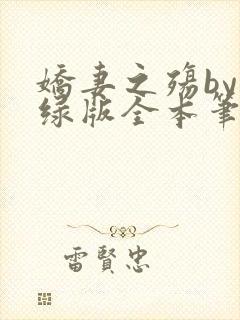 嬌妻之殤by
绿版全本筆
雷賢忠